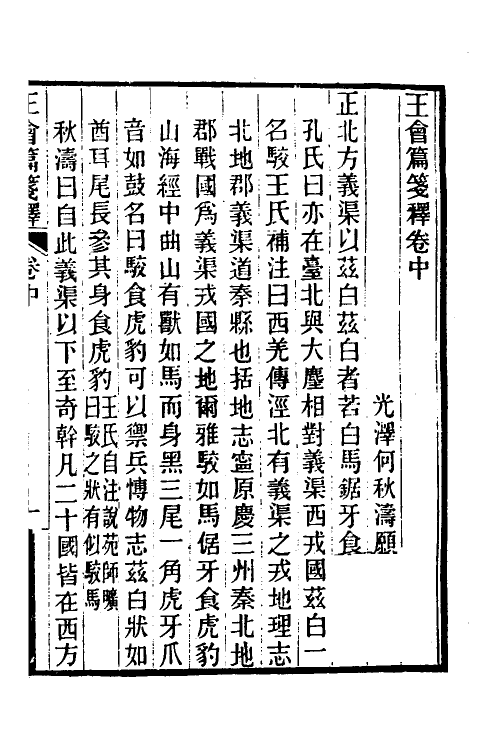 王會篇箋釋卷中
光澤何秋濤願
正北方義渠以茲白茲白者若白馬鋸牙食
孔氏曰亦在臺北與大塵相對義渠西戎國茲白一
名駮王氏補注曰西羌傳涇北有義渠之戎地理志
北地郡義渠道秦縣也括地志寧原慶三州秦北地
郡戰國爲義渠戎國之地爾雅駮如馬倨牙食虎豹
山海經中曲山有獸如馬而身黑三尾一角虎牙爪
音如鼓名曰駮食虎豹可以禦兵博物志茲白狀如
酋耳尾長參其身食虎豹王氏自注說苑師曠
曰駮之狀有似駮馬
秋濤曰自此義渠以下至奇幹凡二十國皆在西方
王會篇箋釋 卷中